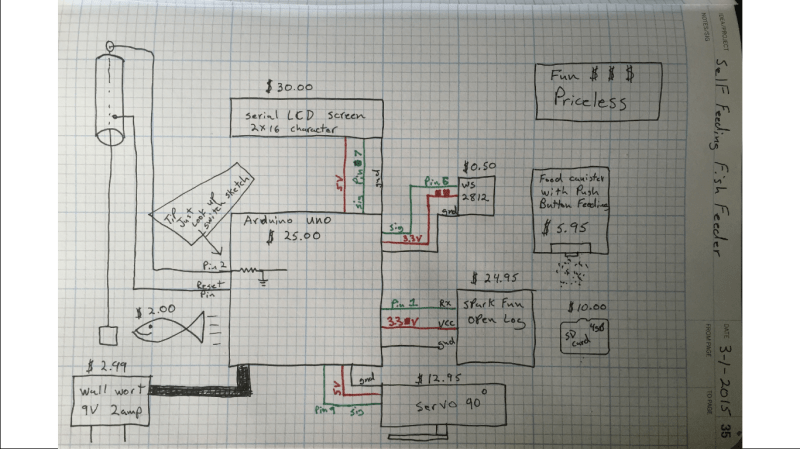 IDEA/PROJECT
NOTES/SIG
Self Feeding Fish Feeder
DATE 3-1-2015
FROM PAGE
TO PAGE
35
$30.00
Serial LCD Screen
2x16 character
5V
sig Pin 7
gnd
Fun $ $ $
Priceless
Tip
Just
Look up
switch sketch
Arduino uno
$ 25.00
Pin 2
Reset
Pin
$0.50
WS
2812
Pin 5
gnd
sig
3.3V
Food canister
with Push
Button Feeding
$ 5.95
$ 24.95
Spark Fun
Open Log
Pin 1 Rx
Vcc
gnd
$10.00
SD
card
$ 2.00
$ 2.99
Wall wort
9V 2amp
gnd
5V
Pin 9 sig
$ 12.95
Servo 90°